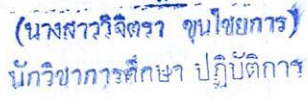 (นางสาววิจิตรา ขุนไชยการ)
นักวิชาการศึกษา ปฏิบัติการ